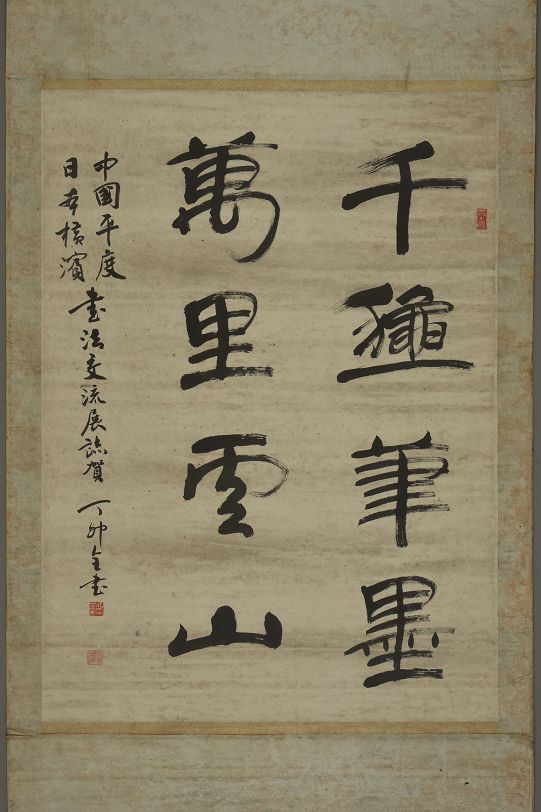 千筆墨
萬里云山
中國平度
日本横濱
書法交流展誌賀 丁卯書